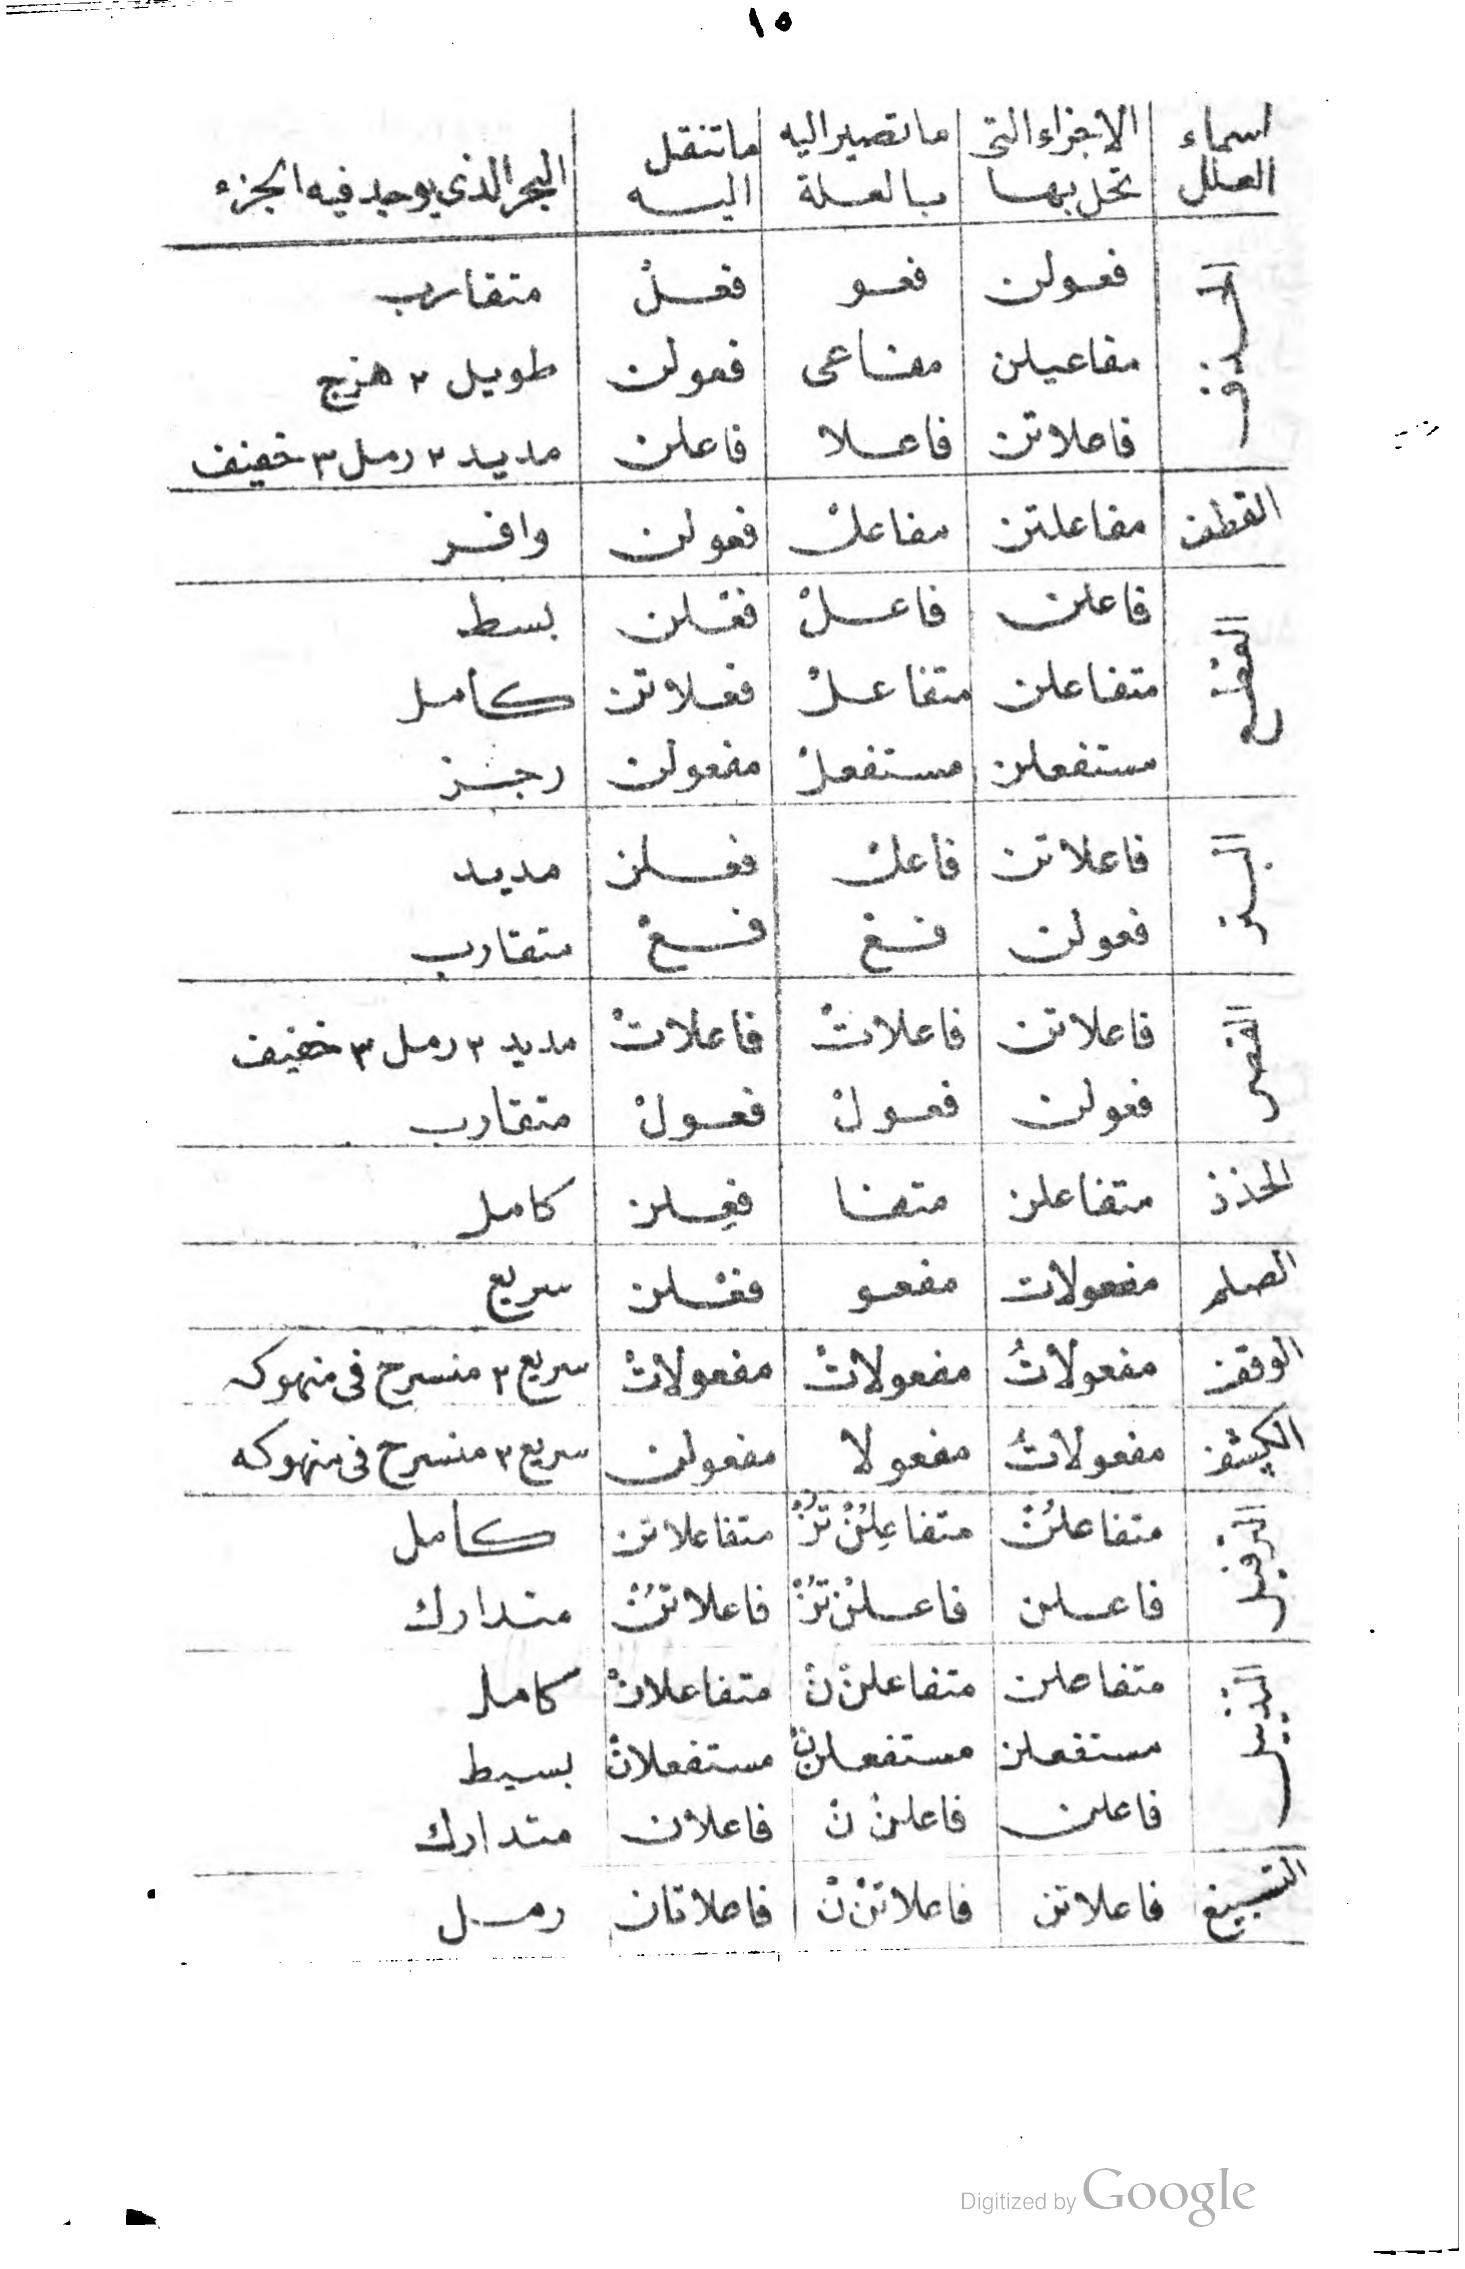 ١٥
اسماء العلل | الاجزاء التى تحل بها | ما تصير اليه بالعلة | ما تنقل اليه | البحر الذي يوجد فيه الجزء
الحذف | فعولن | فعو | فعلْ | متقارب
مفاعيلن | مفاعى | فعولن | طويل ٢ هزج
فاعلاتن | فاعلا | فاعلن | مديد ٢ رمل ٣ خفيف
القطف | مفاعلتن | مفاعلْ | فعولن | وافر
القطع | فاعلن | فاعلْ | فعْلن | بسط
متفاعلن | متفاعلْ | فعلاتن | كامل
مستفعلن | مستفعلْ | مفعولن | رجز
البتر | فاعلاتن | فاعلْ | فعْلن | مديد
فعولن | فعْ | فعْ | متقارب
القصر | فاعلاتن | فاعلاتْ | فاعلاتْ | مديد ٢ رمل ٣ خفيف
فعولن | فعولْ | فعولْ | متقارب
الحذذ | متفاعلن | متفا | فعِلن | كامل
الصلم | مفعولات | مفعو | فعْلن | سريع
الوقف | مفعولاتُ | مفعولاتْ | مفعولاتْ | سريع ٢ منسرح فى منهوكه
الكشف | مفعولاتُ | مفعولا | مفعولن | سريع ٢ منسرح فى منهوكه
الترفيل | متفاعلُنْ | متفاعِلُنْ تُنْ | متفاعلاتن | كامل
فاعلن | فاعلنْ تُنْ | فاعلاتُنْ | متدارك
التذييل | متفاعلن | متفاعلنْ نْ | متفاعلانْ | كامل
مستفعلن | مستفعلن نْ | مستفعلانْ | بسيط
فاعلن | فاعلنْ نْ | فاعلان | متدارك
التسبيغ | فاعلاتن | فاعلاتنْ نْ | فاعلاتان | رمل
Digitized by Google